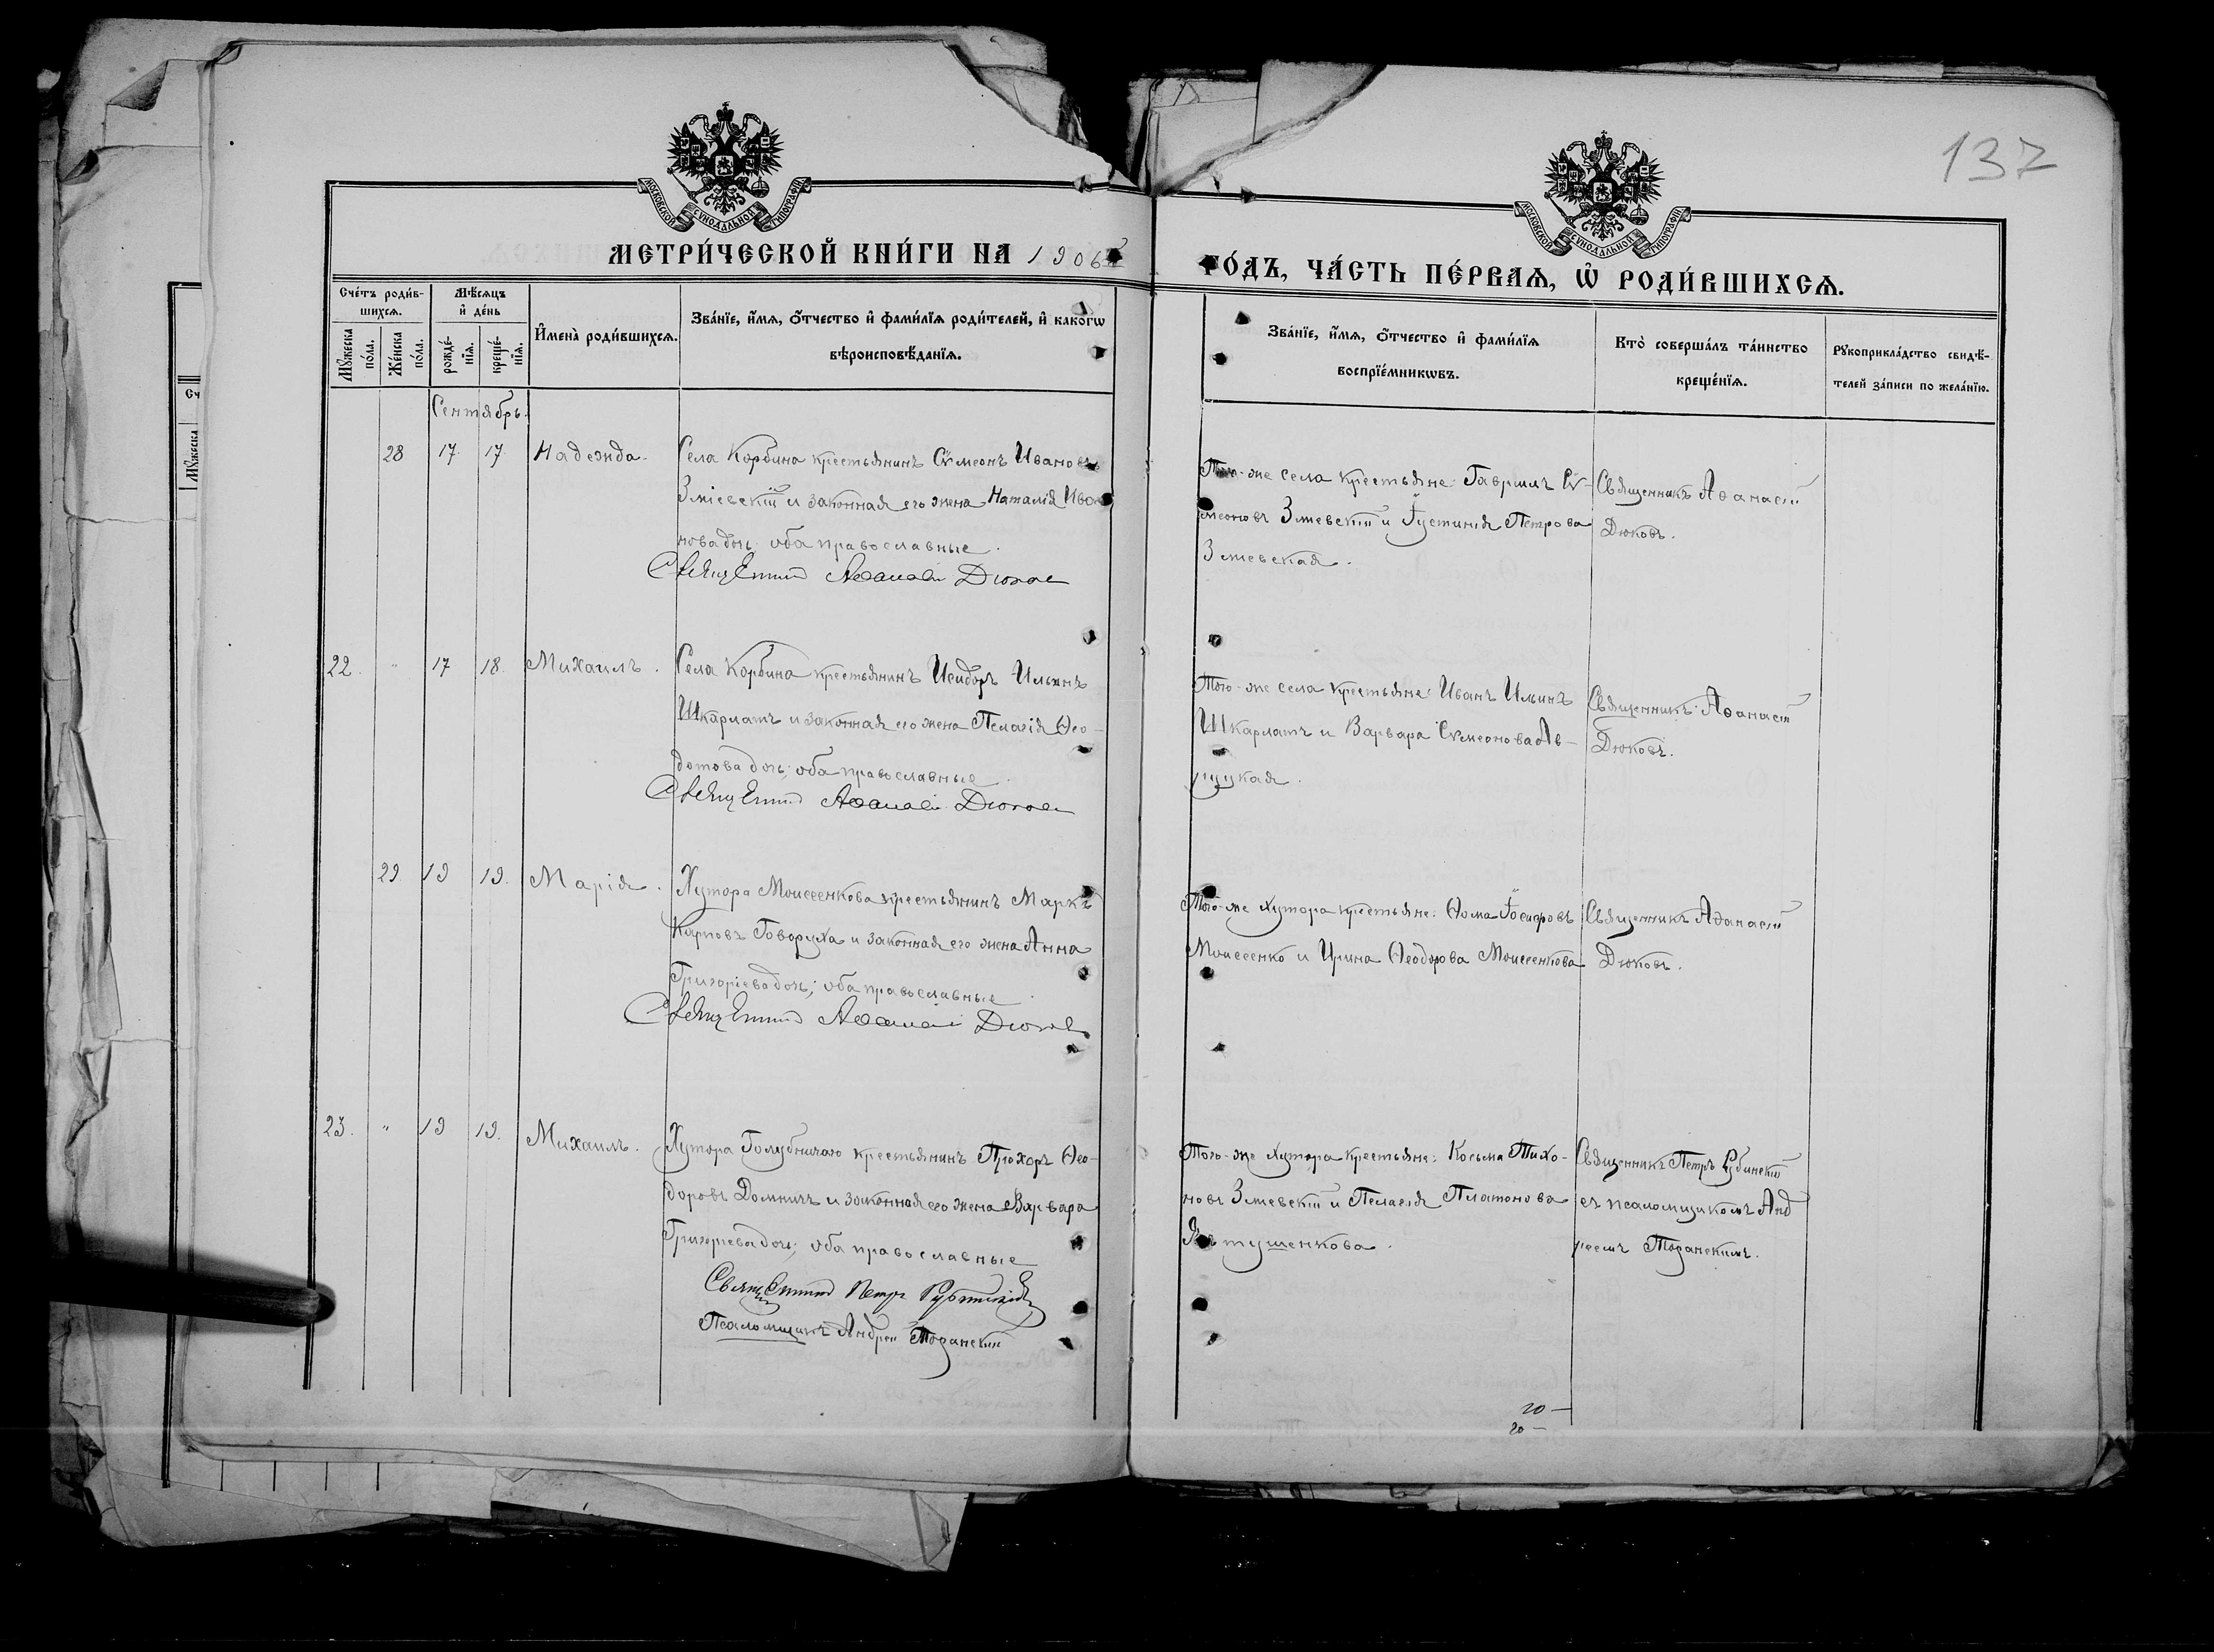 137
МОСКОВСКОЙ СУНОДАЛЬНОЙ ТИПОГРАФІИ
МОСКОВСКОЙ СУНОДАЛЬНОЙ ТИПОГРАФІИ
МЕТРИ́ЧЕСКОЙ КНИ́ГИ НА 1906й
ГО́ДЪ, ЧА́СТЬ ПЕ́РВАѦ, Ѡ҆ РОДИ́ВШИХСѦ.
Сче́тъ роди́в-
шихсѧ.
Мꙋ́жеска по́ла.
Же́нска по́ла.
Мѣ́сѧцъ
и҆ де́нь
рожде́-
нїѧ.
креще́-
нїѧ.
И҆мена̀ роди́вшихсѧ.
Зва́нїе, и҆́мѧ, ѻ҆́тчество и҆ фами́лїѧ роди́телей, и҆ како́гѡ
вѣроисповѣ́данїѧ.
Зва́нїе, и҆́мѧ, ѻ҆́тчество и҆ фами́лїѧ
воспрїе́мникѡвъ.
Кто̀ соверша́лъ та́инство
креще́нїѧ.
Рꙋкоприкла́дство свидѣ́-
телей за́писи по жела́нїю.
Сч
Мꙋ́жеска
Сентябрь.
28 17. 17. Надежда.
Села Корбина крестьянинъ Сѵмеонъ Ивановъ
Зміевскій и законная его жена Наталія Ива-
нова дочь; оба православные.
Священникъ Аѳанасій Дюковъ
Того-же села крестьяне: Гавріилъ Сѵ-
меоновъ Змиевскій и Іустинія Петрова
Змиевская.
Священникъ Аѳанасій
Дюковъ.
22. " 17 18. Михаилъ.
Села Корбина крестьянинъ Исидоръ Ильинъ
Шкарлатъ и законная его жена Пелагія Ѳео-
дотова дочь; оба православные.
Священникъ Аѳанасій Дюковъ
Того-же села крестьяне: Иванъ Ильинъ
Шкарлатъ и Варвара Сѵмеонова
Священникъ Аѳанасій
Дюковъ.
29 19 19. Марія.
Хутора Моисеенкова крестьянинъ Маркъ
Карповъ Говоруха и законная его жена Анна
Григоріева дочь; оба православные.
Священникъ Аѳанасій Дюковъ
Того-же хутора крестьяне: Ѳома Іосифовъ
Моисеенко и Ирина Ѳеодорова Моисеенкова
Священникъ Аѳанасій
Дюковъ.
23. " 19 19. Михаилъ.
Хутора Голубничаго крестьянинъ Прохоръ Ѳео-
доровъ Домничъ и законная его жена Варвара
Григоріева дочь; оба православные
Священникъ Петръ Рубинскій
Псаломщикъ Андрей
Того-же хутора крестьяне: Косьма Тихо-
новъ Змиевскій и Пелагія Платонова
Священникъ Петръ Рубинскій
съ псаломщикомъ Анд
реемъ
20 —
20 —